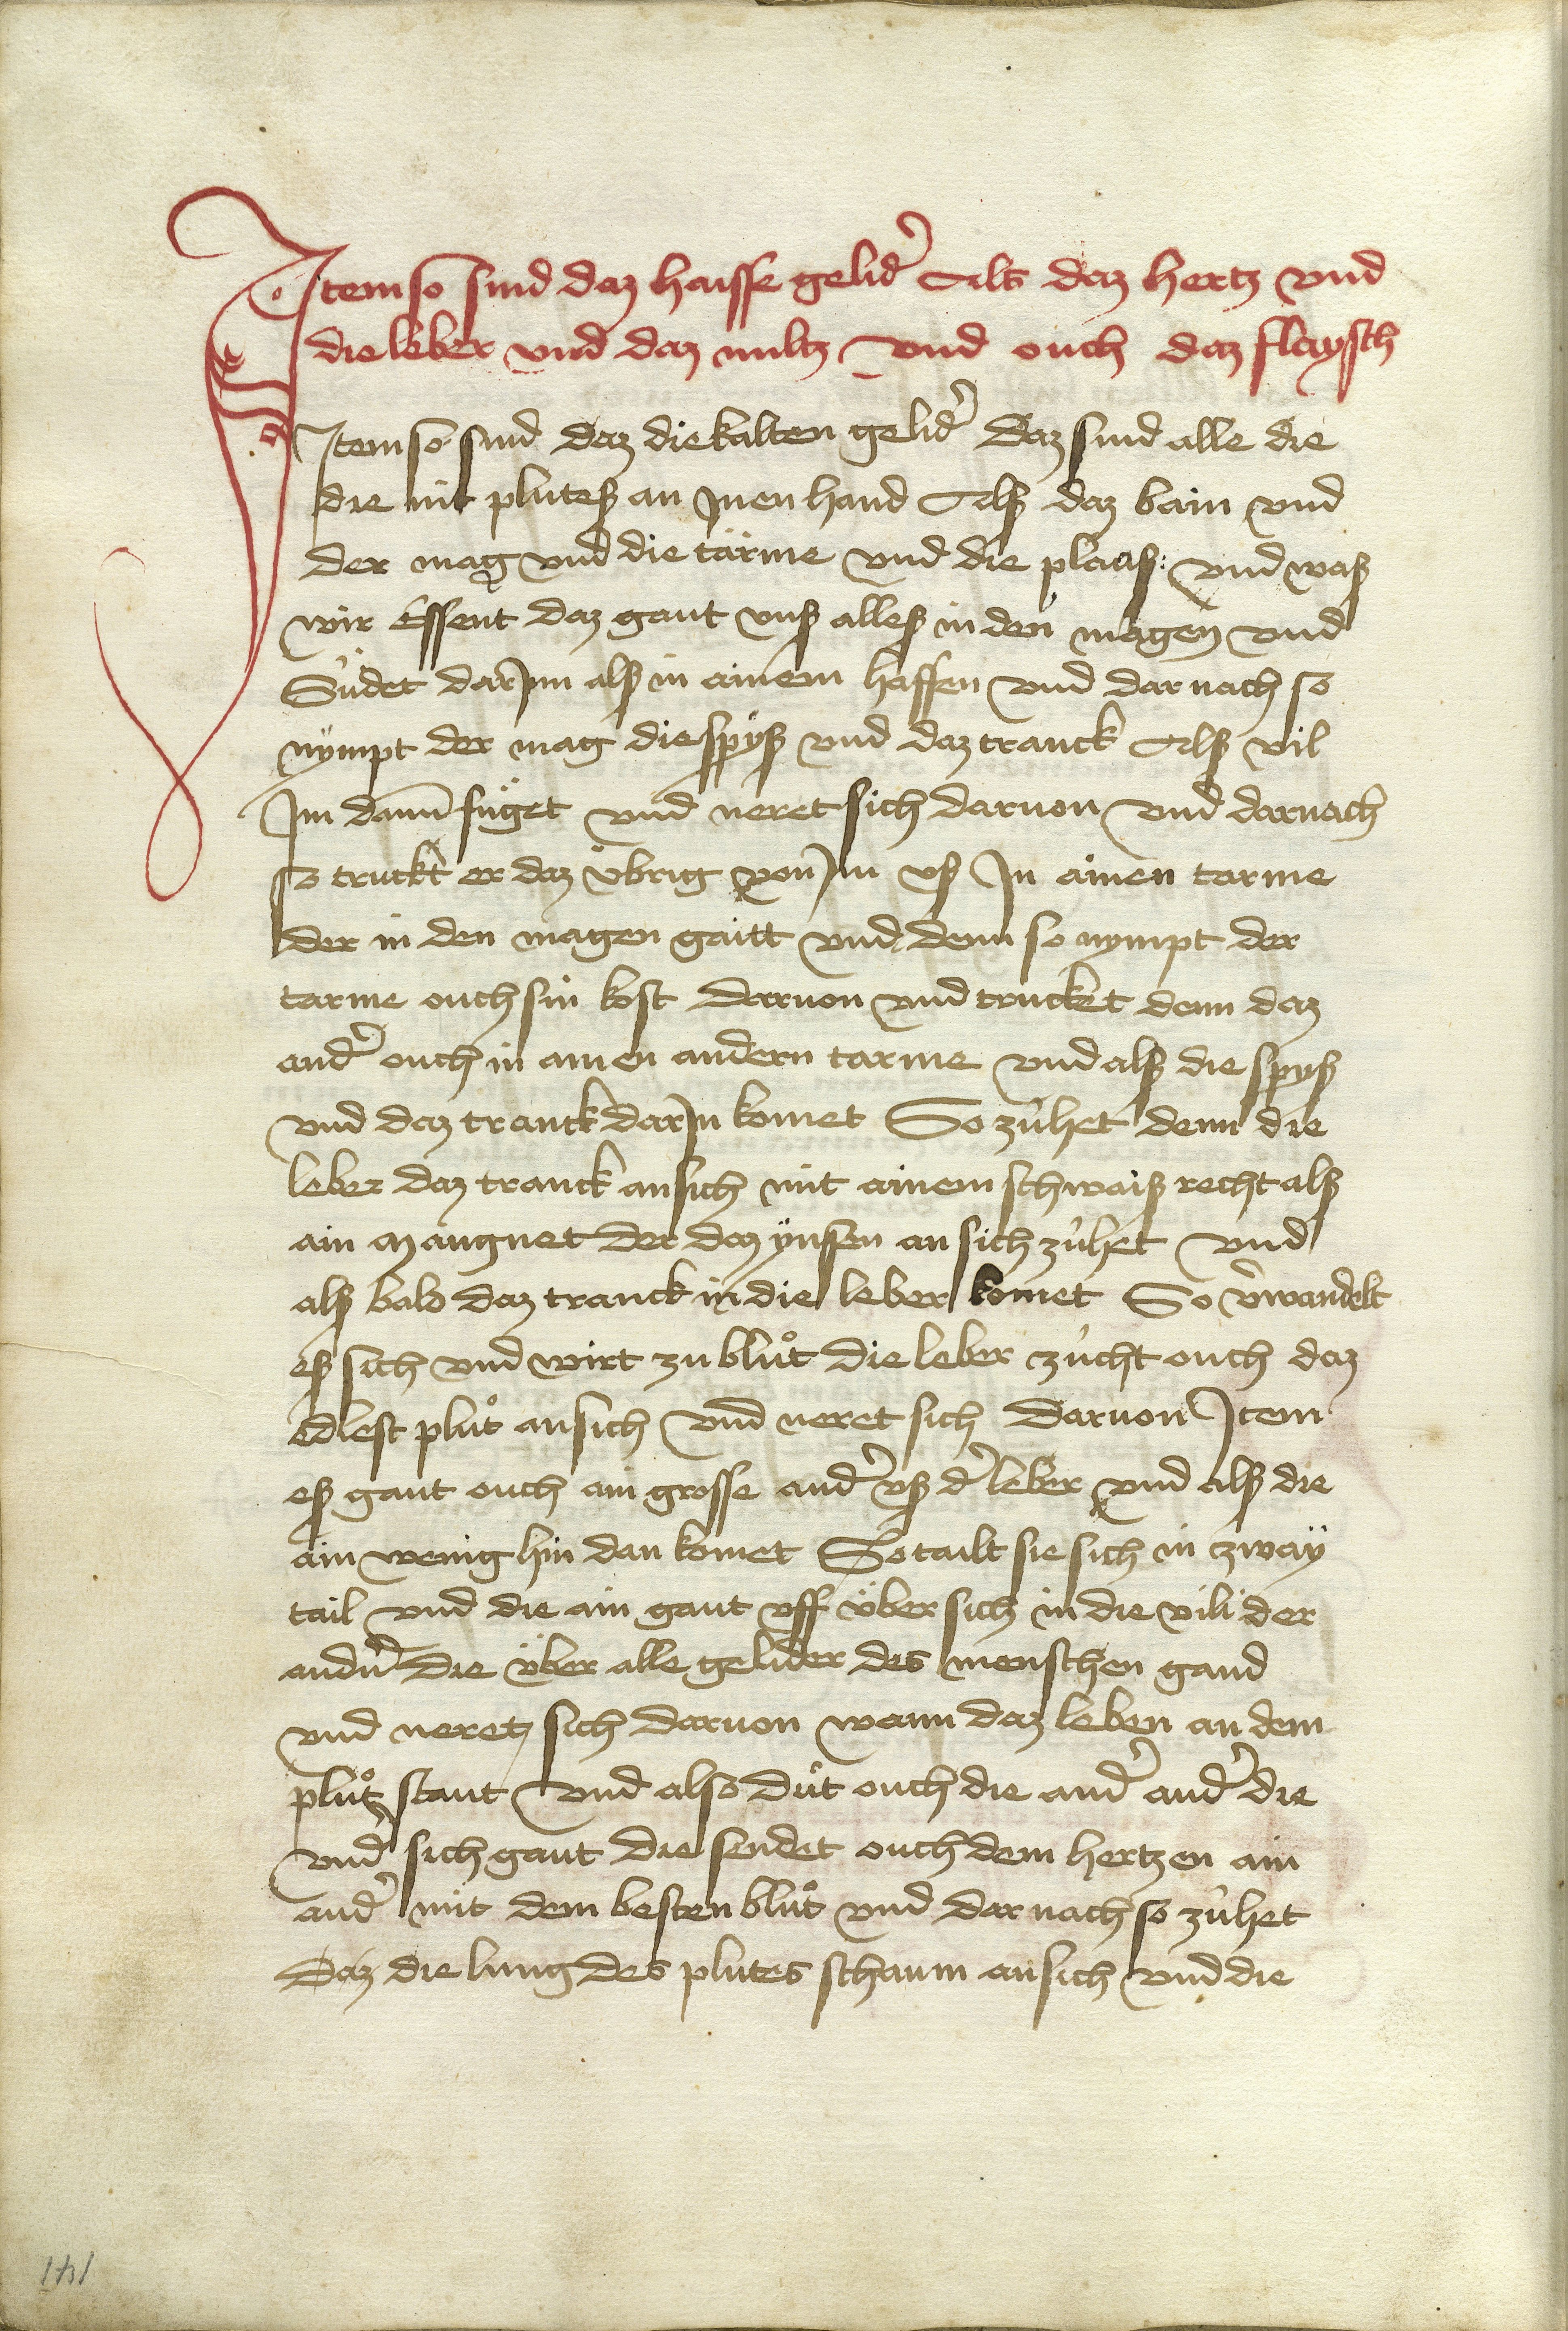 Item so sind daz haisse gelid&#x27; Als daz hertz vnd
die leber vnd daz miltz vnd ouch daz flaysch
Item so sind daz die kalten gelid&#x27; Daz sind alle die
die nit plutes an Inen hand Als daz bain vnd
der mag vnd die tärme vnd die plaͣß: vnd waß
wir Essent daz gaut vnß alleß in den magen vnd
Südet dar Inn alß in ainem haffen vnd dar nach so
nympt der mag die spyß vnd daz tranck Alß vil
Im dann füget vnd neret sich daruon vnd darnach
so truckt er daz übrig von Im vß In ainen tarme
der in den magen gaitt vnd denn so nympt der
tarme ouch sin kost daruon vnd trucket denn daz
and&#x27; ouch in ainen andern tarme vnd alß die spyß
vnd daz tranck dar In komet So zühet denn die
leber daz tranck an sich mit ainem schwaiß recht alß
ain Mangnet der daz ÿnssen an sich zühet vnd
alß bald daz tranck in die leber komet So v&#x27;wandelt
eß sich vnd wirt zu blůt die leber zücht ouch daz
edlest plůt an sich vnd neret sich daruon Item
eß gaut ouch ain grosse aud&#x27; vß d&#x27; leber vnd alß die
ain wenig hin dan komet So tailt sie sich in zwaÿ
tail vnd die ain gaut vff über sich in die vili der
audn&#x27; die über alle gelider des menschen gand
vnd neretz sich daruon wann daz leben an dem
plůtz staut vnd also důt ouch die and&#x27; aud&#x27; die
vnd&#x27; sich gaut die sendet ouch dem hertzen ain
aud&#x27; mit dem besten blůt vnd dar nach so zühet
Daz die lung des plutes schaum an sich vnd die
141